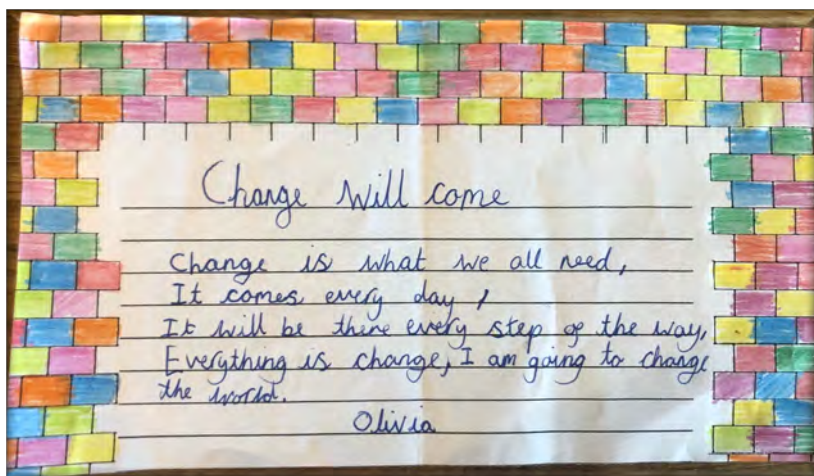 Change will come
Change is what we all need,
It comes every day,
It will be there every step of the way,
Everything is change, I am going to change
the world.
Olivia